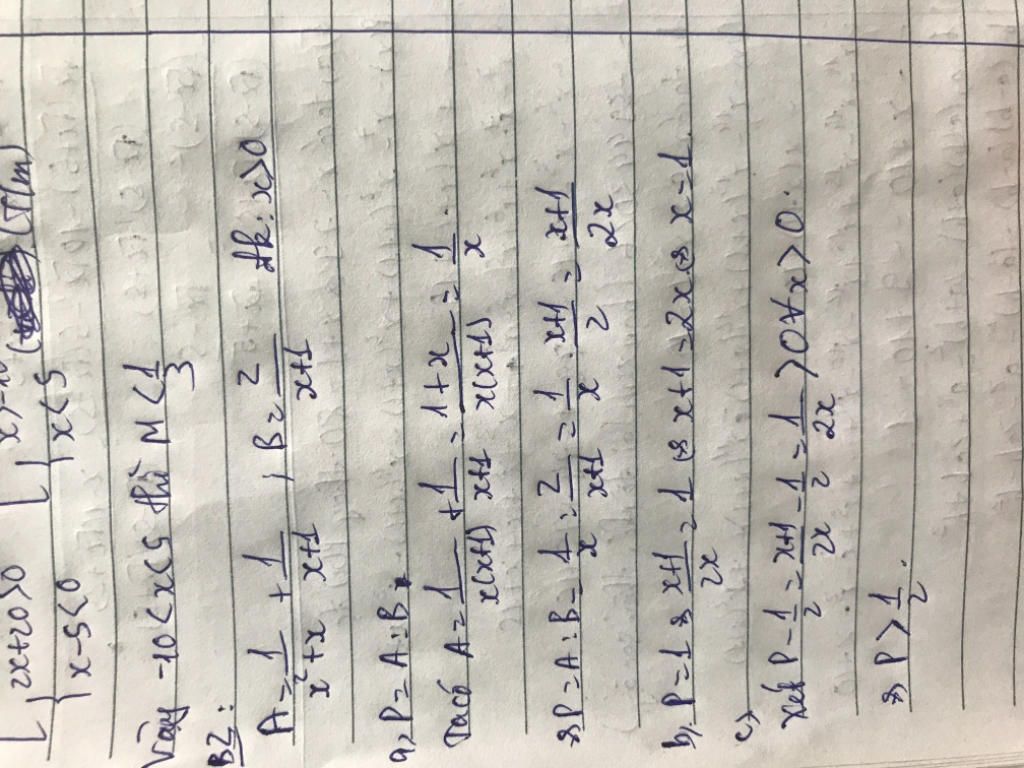 2x+20>0 x>-10 (TM)
x-5<0 x<5
Vậy -10<x<5 thì M<1/3
B2:
A=1/(x²+x) + 1/(x+1), B=2/(x+1) đk: x>0
a, P=A:B
Ta có A=1/(x(x+1)) + 1/(x+1) = (1+x)/(x(x+1)) = 1/x
⇒P=A:B=1/x:2/(x+1)=1/x.(x+1)/2=(x+1)/(2x)
b, P=1⇔(x+1)/(2x)=1⇔x+1=2x⇔x=1
c,
Xét P-1/2=(x+1)/(2x)-1/2=1/(2x)>0∀x>0.
⇒P>1/2.